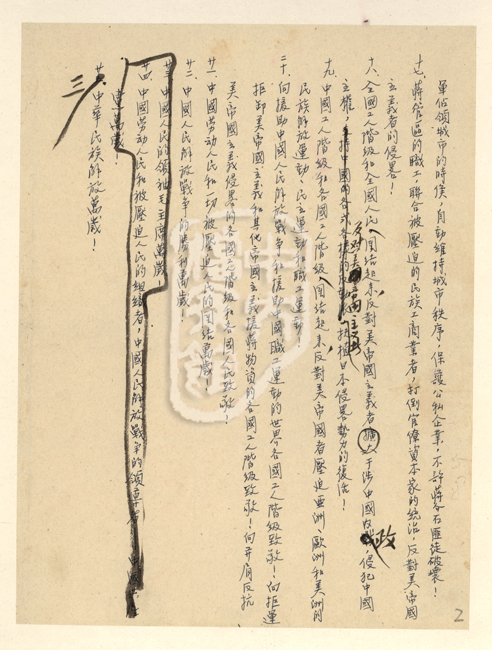 軍佔領城市的時候，自動維持城市秩序，保護公私企業，不許蔣介石匪徒破壞！
十七、蔣管區的職工，聯合被壓迫的民族工商業者，打倒官僚資本家的統治，反對美帝國
主義者的侵畧！
十八、全國工人階級和全國人民團結起來，反對美帝國主義者擴大干涉中國內政侵犯中國
主權，反對美帝國主義扶植日本侵畧勢力的復活！
十九、中國工人階級和各國工人階級團結起來，反對美帝國者壓迫亞洲、歐洲和美洲的
民族解放運動、民主運動和職工運動
二十、向援助中國人民解放戰爭和援助中國職工運動的世界各國工人階級致敬！向拒運
拒卸美帝國主義和其他帝國主義援蔣物資的各國工人階級致敬！向并肩反抗
美帝國主義侵畧的各國工人階級和各國人民致敬！
廿一、中國勞動人民和一切被壓迫人民的團結萬歲！
廿二、中國人民解放戰爭的勝利萬歲！
廿三、中國人民的領袖毛主席萬歲
廿四、中國勞動人民和被壓迫人民的組織者，中國人民解放戰爭的領導者
萬歲！
中華民族解放萬歲！
三
2